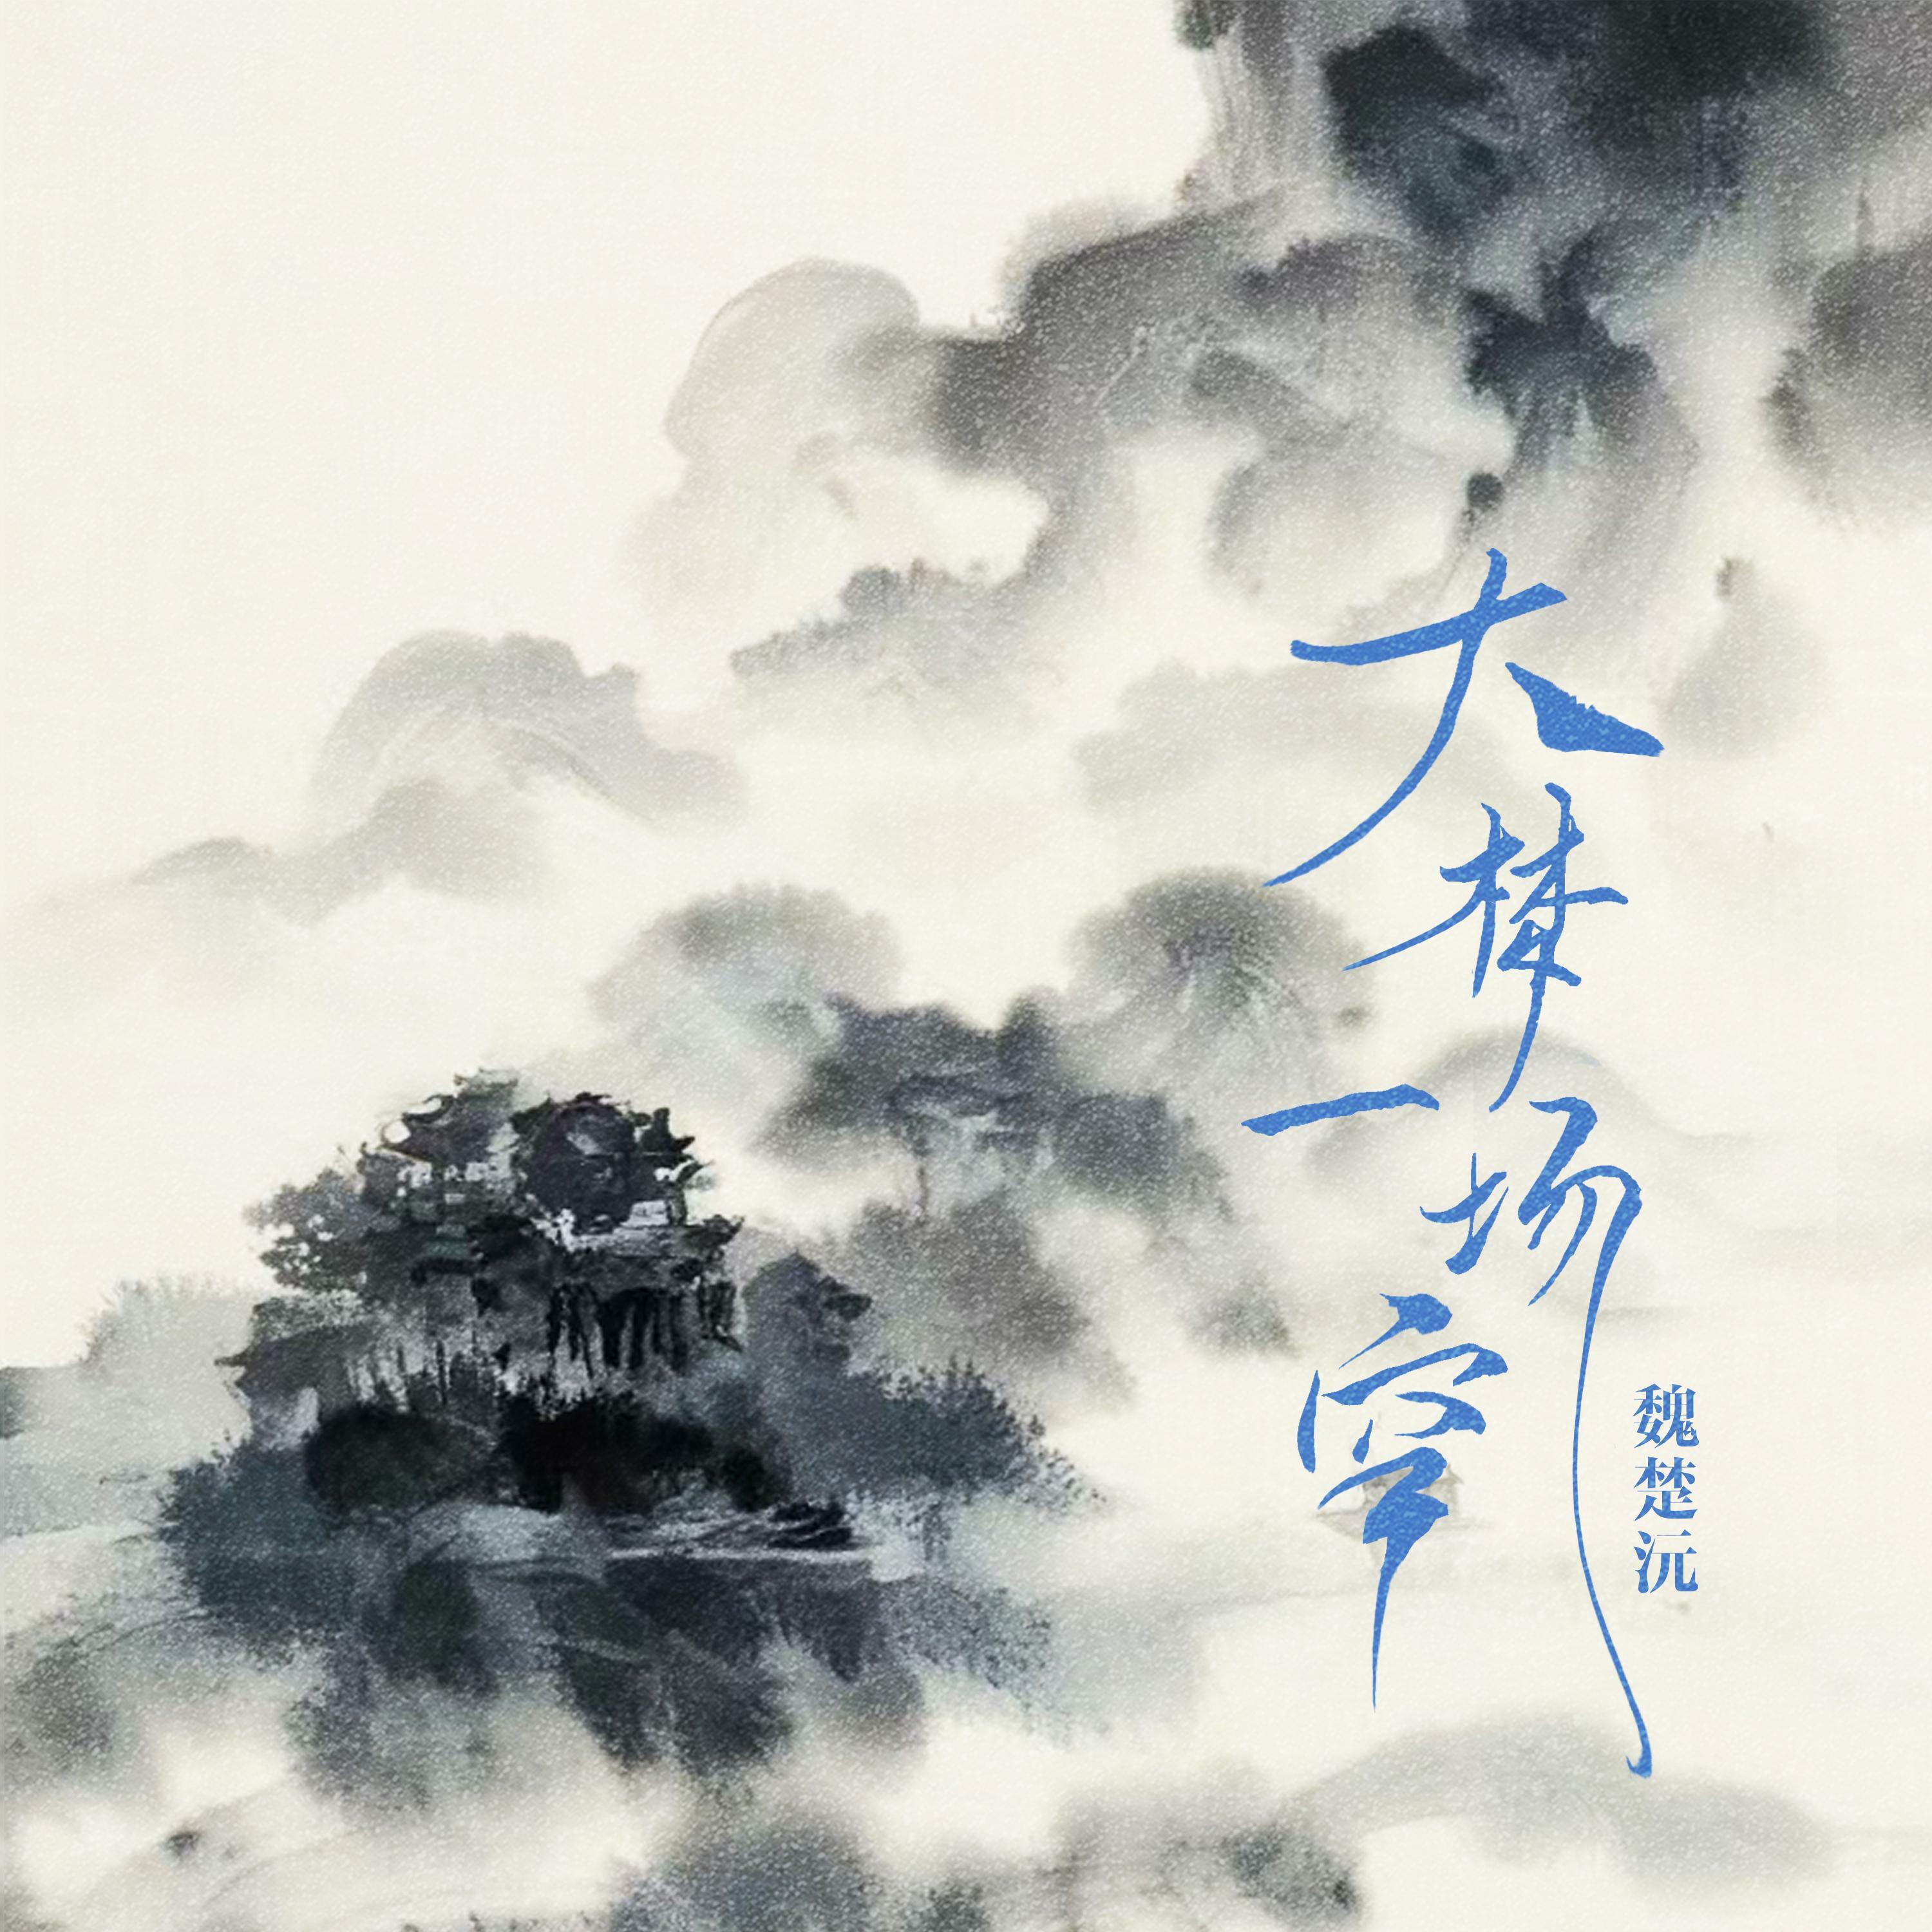 大梦
一场
空
魏楚沅